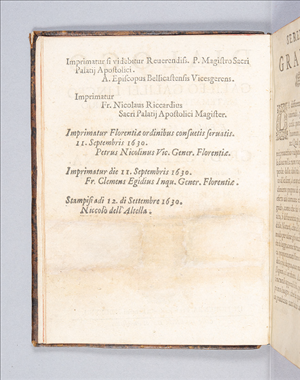 Imprimatur si videbitur Reuerendiss. P. Magistro Sacri
Palatij Apostolici.
A. Episcopus Bellicastensis Vicesgerens.
Imprimatur
Fr. Nicolaus Riccardius
Sacri Palatij Apostolici Magister.
Imprimatur Florentiæ ordinibus consuetis seruatis.
11. Septembris 1630.
Petrus Nicolinus Vic. Gener. Florentiæ.
Imprimatur die 11. Septembris 1630.
Fr. Clemens Egidius Inqu. Gener. Florentiæ.
Stampisi adi 12. di Settembre 1630.
Niccolò dell'Altella.
GRA